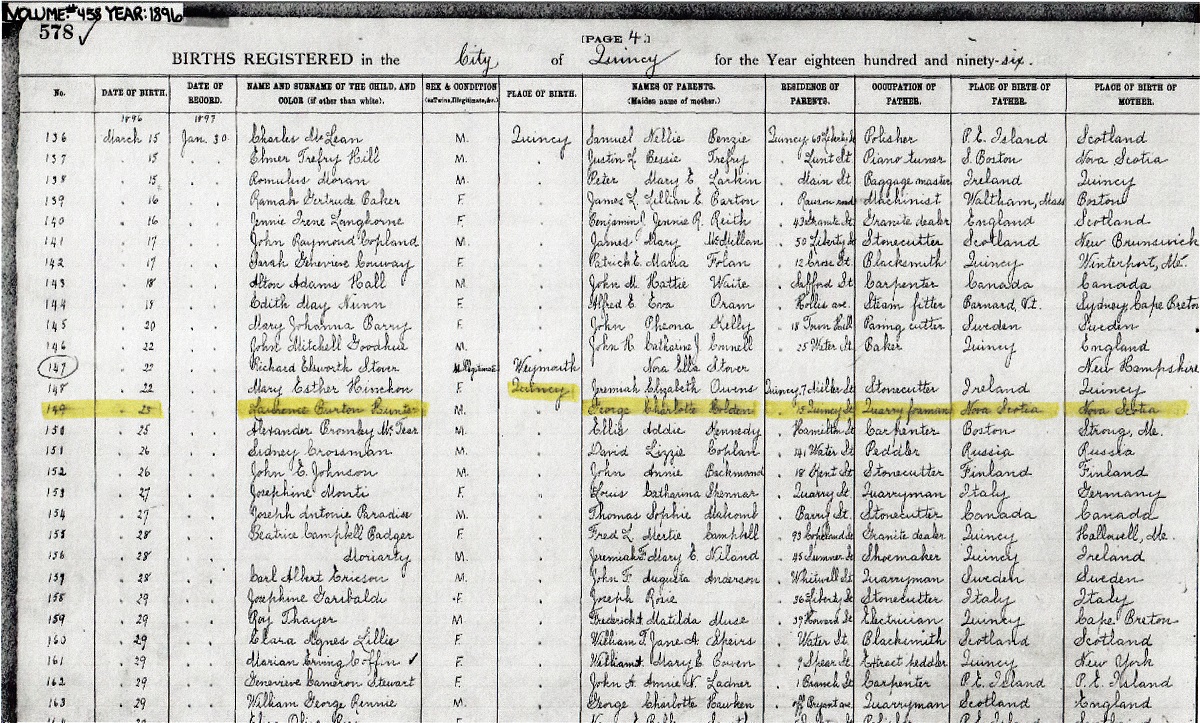 VOLUME:#458 YEAR:1896
578 ✓
[PAGE 4.]
BIRTHS REGISTERED in the City of Quincy for the Year eighteen hundred and ninety-six.
No. DATE OF BIRTH. DATE OF RECORD. NAME AND SURNAME OF THE CHILD, AND COLOR (if other than white). SEX & CONDITION (as Twins, Illegitimate, &c.) PLACE OF BIRTH. NAMES OF PARENTS. (Maiden name of mother.) RESIDENCE OF PARENTS. OCCUPATION OF FATHER. PLACE OF BIRTH OF FATHER. PLACE OF BIRTH OF MOTHER.
1896 1897
136 March 15 Jan. 30 Charles McLean M. Quincy Samuel Nellie Benzie Quincy, 60 Liberty St Polisher P.E. Island Scotland
137 . 15 . . Elmer Trefry Hill M. . Justin L. Bessie Trefry . Lunt St. Piano tuner S. Boston Nova Scotia
138 . 15 . . Romulus Moran M. . Peter Mary E. Larkin . Main St. Baggage master Ireland Quincy
139 . 16 . . Ramah Gertrude Baker F. . James L. Lillian E. Barton . Machinist Waltham, Mass Boston
140 . 16 . . Jennie Irene Langhorne F. . Benjamin J. Jennie R. Reith . 43 Granite St. Granite dealer England Scotland
141 . 17 . . John Raymond Copland M. . James Mary McMillan . 50 Liberty St Stonecutter Scotland New Brunswick
142 . 17 . . Sarah Genevieve Conway F. . Patrick E. Maria Folan . 12 Cross St. Blacksmith Quincy Winterport, Me.
143 . 18 . . Alton Adams Hall M. . John M. Hattie Waite . Safford St. Carpenter Canada Canada
144 . 18 . . Edith May Nunn F. . Alfred E. Eva Oram . Hollis ave. Steam fitter Barnard, Vt. Sydney, Cape Breton
145 . 20 . . Mary Johanna Barry F. . John Pheona Kelly . 18 Town Hill Paving cutter Sweden Sweden
146 . 22 . . John Mitchell Goodhue M. . John H. Catharine J. Connell . 25 Water St. Baker Quincy England
147 . 22 . . Richard Elsworth Stover M. Illegitimate Weymouth Nora Ella Stover New Hampshire
148 . 22 . . Mary Esther Hinchon F. Quincy Jeremiah Elizabeth Owens Quincy, 7 Miller St Stonecutter Ireland Quincy
149 . 25 . . Laurence Burton Hunter M. . George Charlotte Holden . 15 Quincy St Quarry foreman Nova Scotia Nova Scotia
150 . 25 . . Alexander Bromley McTear M. . Ellis Addie Kennedy . Hamilton St Carpenter Boston Strong, Me.
151 . 26 . . Sidney Crossman M. . David Lizzie Coplan . 141 Water St. Peddler Russia Russia
152 . 26 . . John E. Johnson M. . John Annie Backmand . 18 Kent St. Stonecutter Finland Finland
153 . 27 . . Josephine Monti F. . Louis Catharina Spennar . Quarry St. Quarryman Italy Germany
154 . 27 . . Joseph Antonie Paradise M. . Thomas Sophie Malcomb . Barry St. Stonecutter Canada Canada
155 . 28 . . Beatrice Campbell Badger F. . Fred L. Mertie Campbell . 93 Copeland St Granite dealer Quincy Hallowell, Me.
156 . 28 . . Moriarty M. . Jeremiah F. Mary E. Niland . 45 Sumner St Shoemaker Quincy Ireland
157 . 28 . . Carl Albert Ericson M. . John F. Augusta Anderson . Whitwell St Quarryman Sweden Sweden
158 . 29 . . Josephine Garibaldi F. . Joseph Rosie . 36 Liberty St Stonecutter Italy Italy
159 . 29 . . Roy Thayer M. . Frederick A Matilda Muse . 39 Howard St Electrician Quincy Cape Breton
160 . 29 . . Clara Agnes Lillie F. . William T. Jane A. Speirs . Water St. Blacksmith Scotland Scotland
161 . 29 . . Marian Erving Coffin ✓ F. . William A. Mary E. Coven . 9 Spear St. Extract peddler Quincy New York
162 . 29 . . Genevieve Cameron Stewart F. . John A. Annie N. Ladner . 1 Branch St Carpenter P.E. Island P.E. Island
163 . 29 . . William George Rennie M. . George Charlotte Hawken . off Bryant ave. Quarryman Scotland England